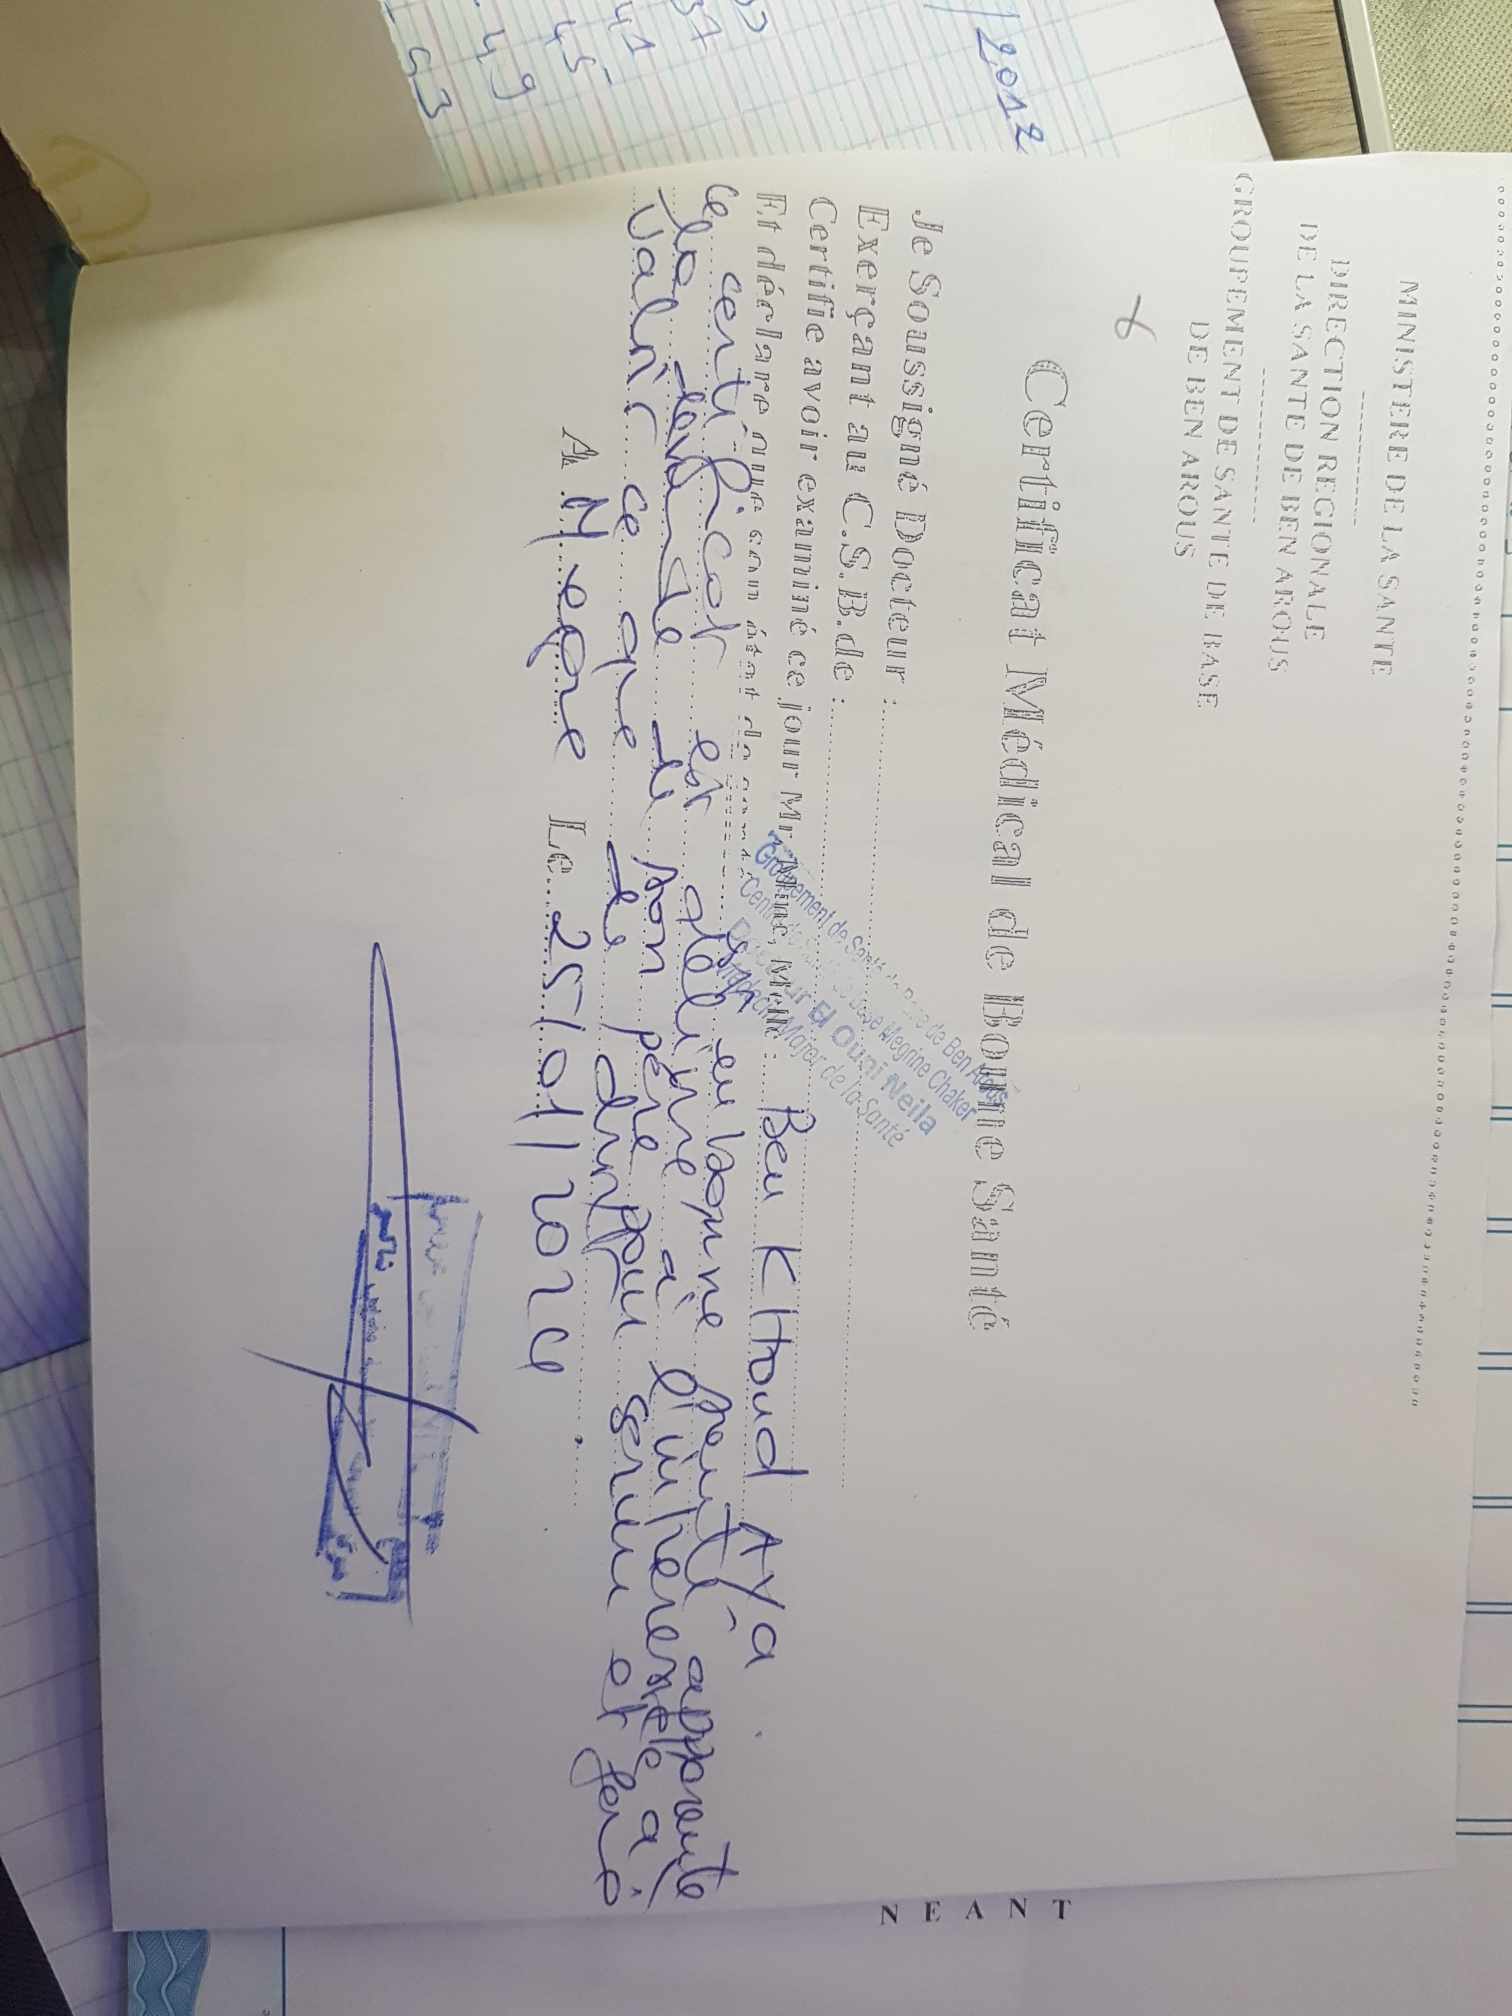 MINISTERE DE LA SANTE
DIRECTION REGIONALE
DE LA SANTE DE BEN AROUS
GROUPEMENT DE SANTE DE BASE
DE BEN AROUS
Certificat Médical de Bonne Santé
Je Soussigné Docteur :
Exerçant au C.S.B.de :
Certifie avoir examiné ce jour Mr, Mme, Melle : Ben Kltoud Aya
Et déclare que son état de santé est en bonne santé apparente
Groupement de Santé de Base de Ben Arous
Centre de Santé de Base Megrine Chaker
Docteur El Ouni Neila
Médecin Major de la Santé
ce certificat est délivré à l'intéressé à
la demande de son père
valoir ce que de droit pour servir et
A Megrine Le 25/01/2024
/2012
37
41
45
49
53
NEANT